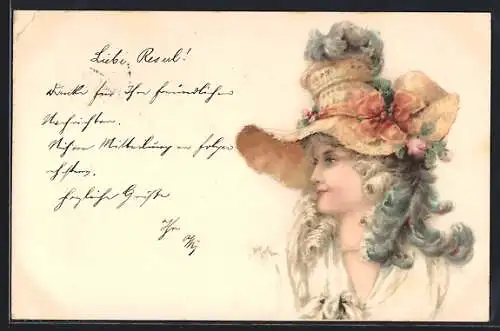 Liebe Resel!
Danke für Ihre freundlichen
Nachrichten.
Mittheilung folgen
herzliche Grüße
Ihr